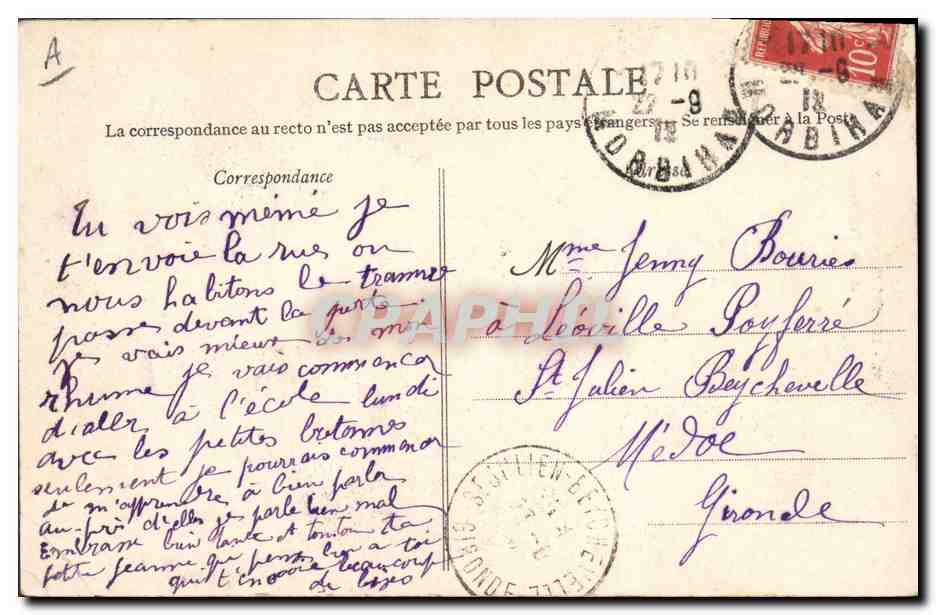 A
CARTE POSTALE
La correspondance au recto n'est pas acceptée par tous les pays étrangers. Se renseigner à la Poste
REPUBLIQUE
10c
17 10
22 -9
MORBIHAN
17 10
22 -9
MORBIHAN
Correspondance
Tu vois mémé je
t'envoie la rue ou
nous habitons le tramve
passe devant la porte
je vais mieux de mon
rhume je vais commencer
d'aller à l'école lundi
avec les petites bretonnes
seulement je pourrais commencer
de m'apprendre à bien parler
au-près d'elles je parle bien mal
Embrasse bien tante et tonton ta
petite Jeanne qui pense bien a toi
qui t'envoie beaucoup
de
Adresse
Mme Jenny Bouries
à Léoville Poyferré
St Julien Beychevelle
Médoc
Gironde
ST JULIEN-BEYCHEVELLE
GIRONDE
CPAPHIL